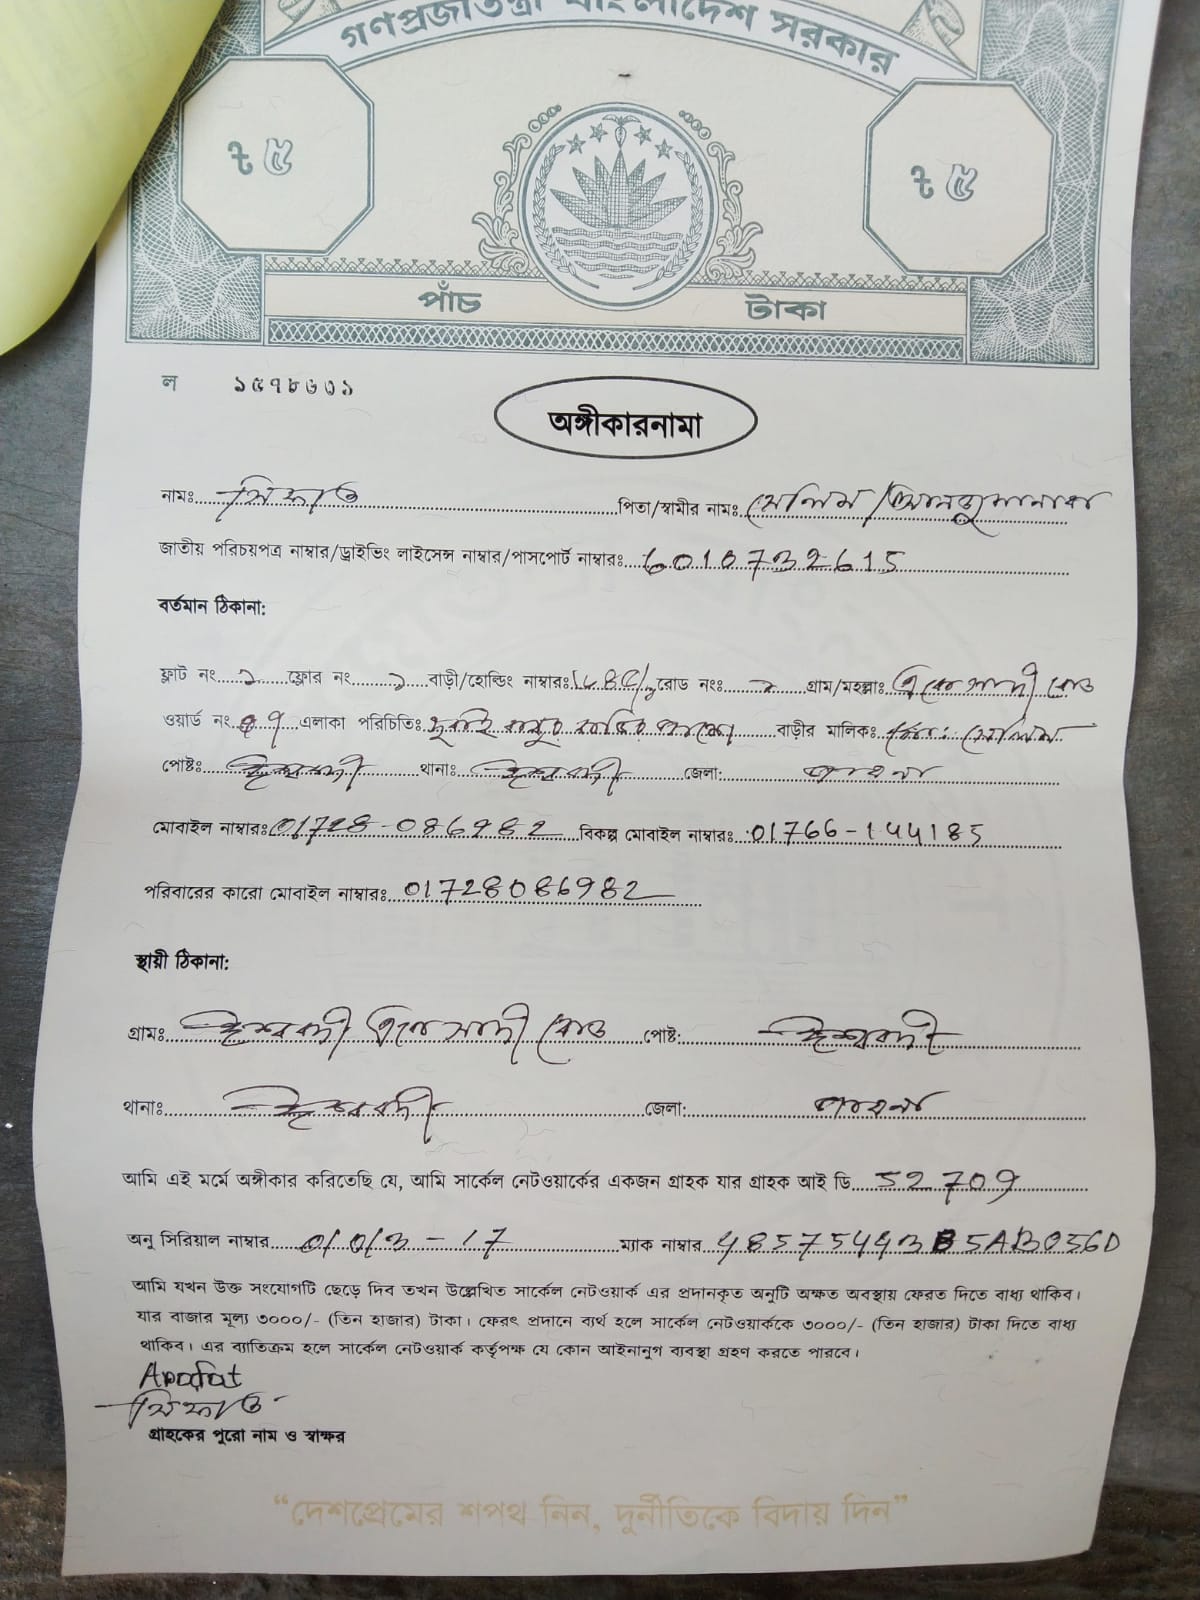 গণপ্রজাতন্ত্রী বাংলাদেশ সরকার
৳ ৫ ৳ ৫
পাঁচ টাকা
ল ১৫৭৮৬৩১
অঙ্গীকারনামা
নামঃ সিফাত পিতা/স্বামীর নামঃ সেলিম
জাতীয় পরিচয়পত্র নাম্বার/ড্রাইভিং লাইসেন্স নাম্বার/পাসপোর্ট নাম্বারঃ 6010732615
বর্তমান ঠিকানা:
ফ্লাট নং ফ্লোর নং বাড়ী/হোল্ডিং নাম্বারঃ রোড নংঃ গ্রাম/মহল্লাঃ রোড
ওয়ার্ড নং এলাকা পরিচিতিঃ বাড়ীর মালিকঃ সেলিম
পোষ্টঃ ঈশ্বরদী থানাঃ ঈশ্বরদী জেলা: পাবনা
মোবাইল নাম্বারঃ 01728-086982 বিকল্প মোবাইল নাম্বারঃ 01766-144185
পরিবারের কারো মোবাইল নাম্বারঃ 01728086982
স্থায়ী ঠিকানা:
গ্রামঃ ঈশ্বরদী রোড পোষ্ট: ঈশ্বরদী
থানাঃ ঈশ্বরদী জেলা: পাবনা
আমি এই মর্মে অঙ্গীকার করিতেছি যে, আমি সার্কেল নেটওয়ার্কের একজন গ্রাহক যার গ্রাহক আই ডি 52709
অনু সিরিয়াল নাম্বার 0/0/3-17 ম্যাক নাম্বার
আমি যখন উক্ত সংযোগটি ছেড়ে দিব তখন উল্লেখিত সার্কেল নেটওয়ার্ক এর প্রদানকৃত অনুটি অক্ষত অবস্থায় ফেরত দিতে বাধ্য থাকিব।
যার বাজার মূল্য ৩০০০/- (তিন হাজার) টাকা। ফেরৎ প্রদানে ব্যর্থ হলে সার্কেল নেটওয়ার্ককে ৩০০০/- (তিন হাজার) টাকা দিতে বাধ্য
থাকিব। এর ব্যতিক্রম হলে সার্কেল নেটওয়ার্ক কর্তৃপক্ষ যে কোন আইনানুগ ব্যবস্থা গ্রহণ করতে পারবে।
Arafat
সিফাত
গ্রাহকের পুরো নাম ও স্বাক্ষর
“দেশপ্রেমের শপথ নিন, দুর্নীতিকে বিদায় দিন”